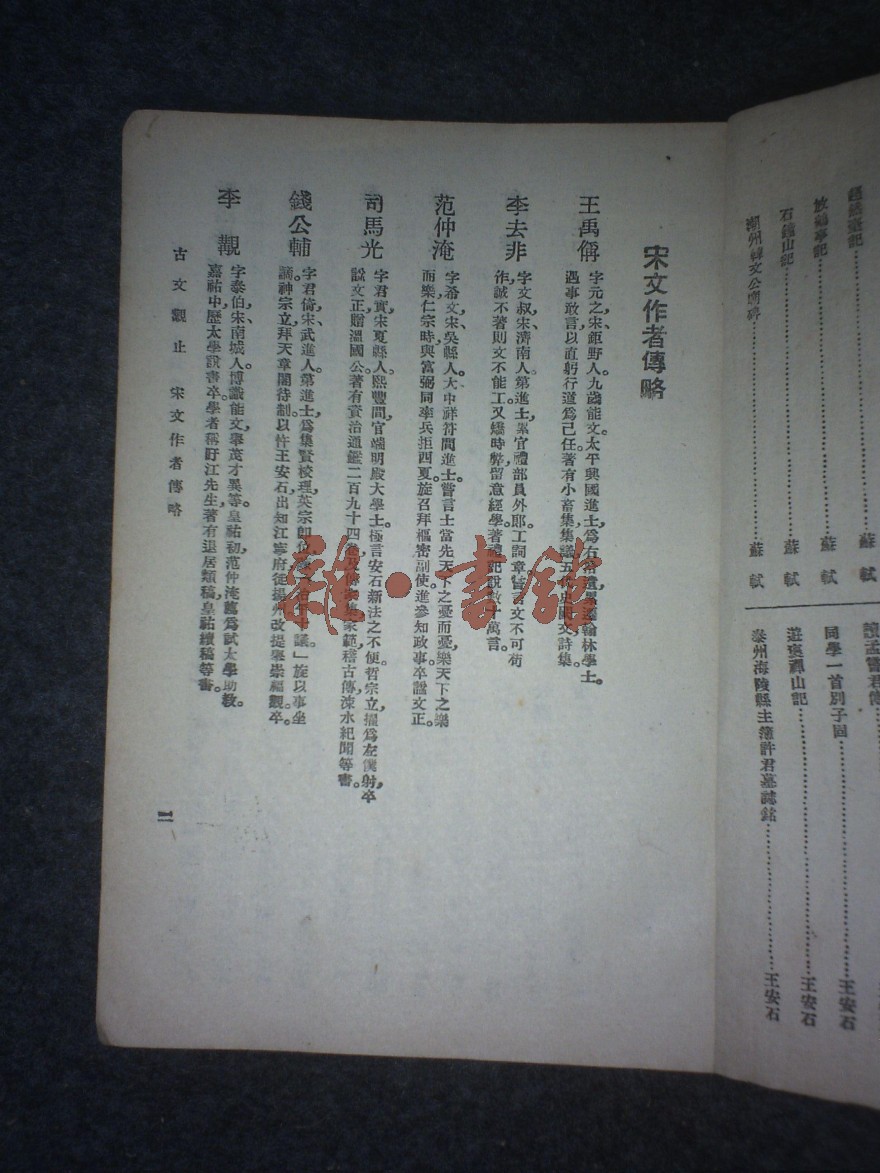 超然臺記
放鶴亭記……蘇軾
石鐘山記……蘇軾
潮州韓文公廟碑……蘇軾
讀孟嘗君傳
同學一首別子固……王安石
遊褒禪山記……王安石
泰州海陵縣主簿許君墓誌銘……王安石
宋文作者傳略
王禹偁
字元之、宋鉅野人。九歲能文。太平興國進士、為右
遇事敢言、以直躬行道為己任。著有小畜集、集議、五代史闕文、詩集。
李去非
字文叔、宋濟南人。第進士、累官禮部員外郎。工詞章、嘗言文不可苟
作、誠不著則文不能工。又矯時弊、留意經學、著禮記說數十萬言。
范仲淹
字希文、宋吳縣人。大中祥符間進士。嘗言士當先天下之憂而憂、樂天下之樂
而樂。仁宗時、與富弼同率兵拒西夏。旋召拜樞密副使、進參知政事。卒諡文正。
司馬光
字君實、宋夏縣人。熙豐間官端明殿大學士。極言安石新法之不便。哲宗立、擢為左僕射。卒
諡文正、贈溫國公。著有資治通鑑二百九十四卷、及
家範、稽古傳、涑水紀聞等書。
錢公輔
字君倚、宋武進人。第進士、為集賢校理。英宗即位、
議」、旋以事坐
謫。神宗立、拜天章閣待制。以忤王安石出知江寧府、徙揚州、改提舉崇福觀。卒。
李覯
字泰伯、宋南城人。博識能文、舉茂才異等。皇祐初、范仲淹薦為試太學助教。
嘉祐中、歷太學說書。卒、學者稱盱江先生。著有退居類稿、皇祐續稿等書。
古文觀止 宋文作者傳略
一
雜·書館